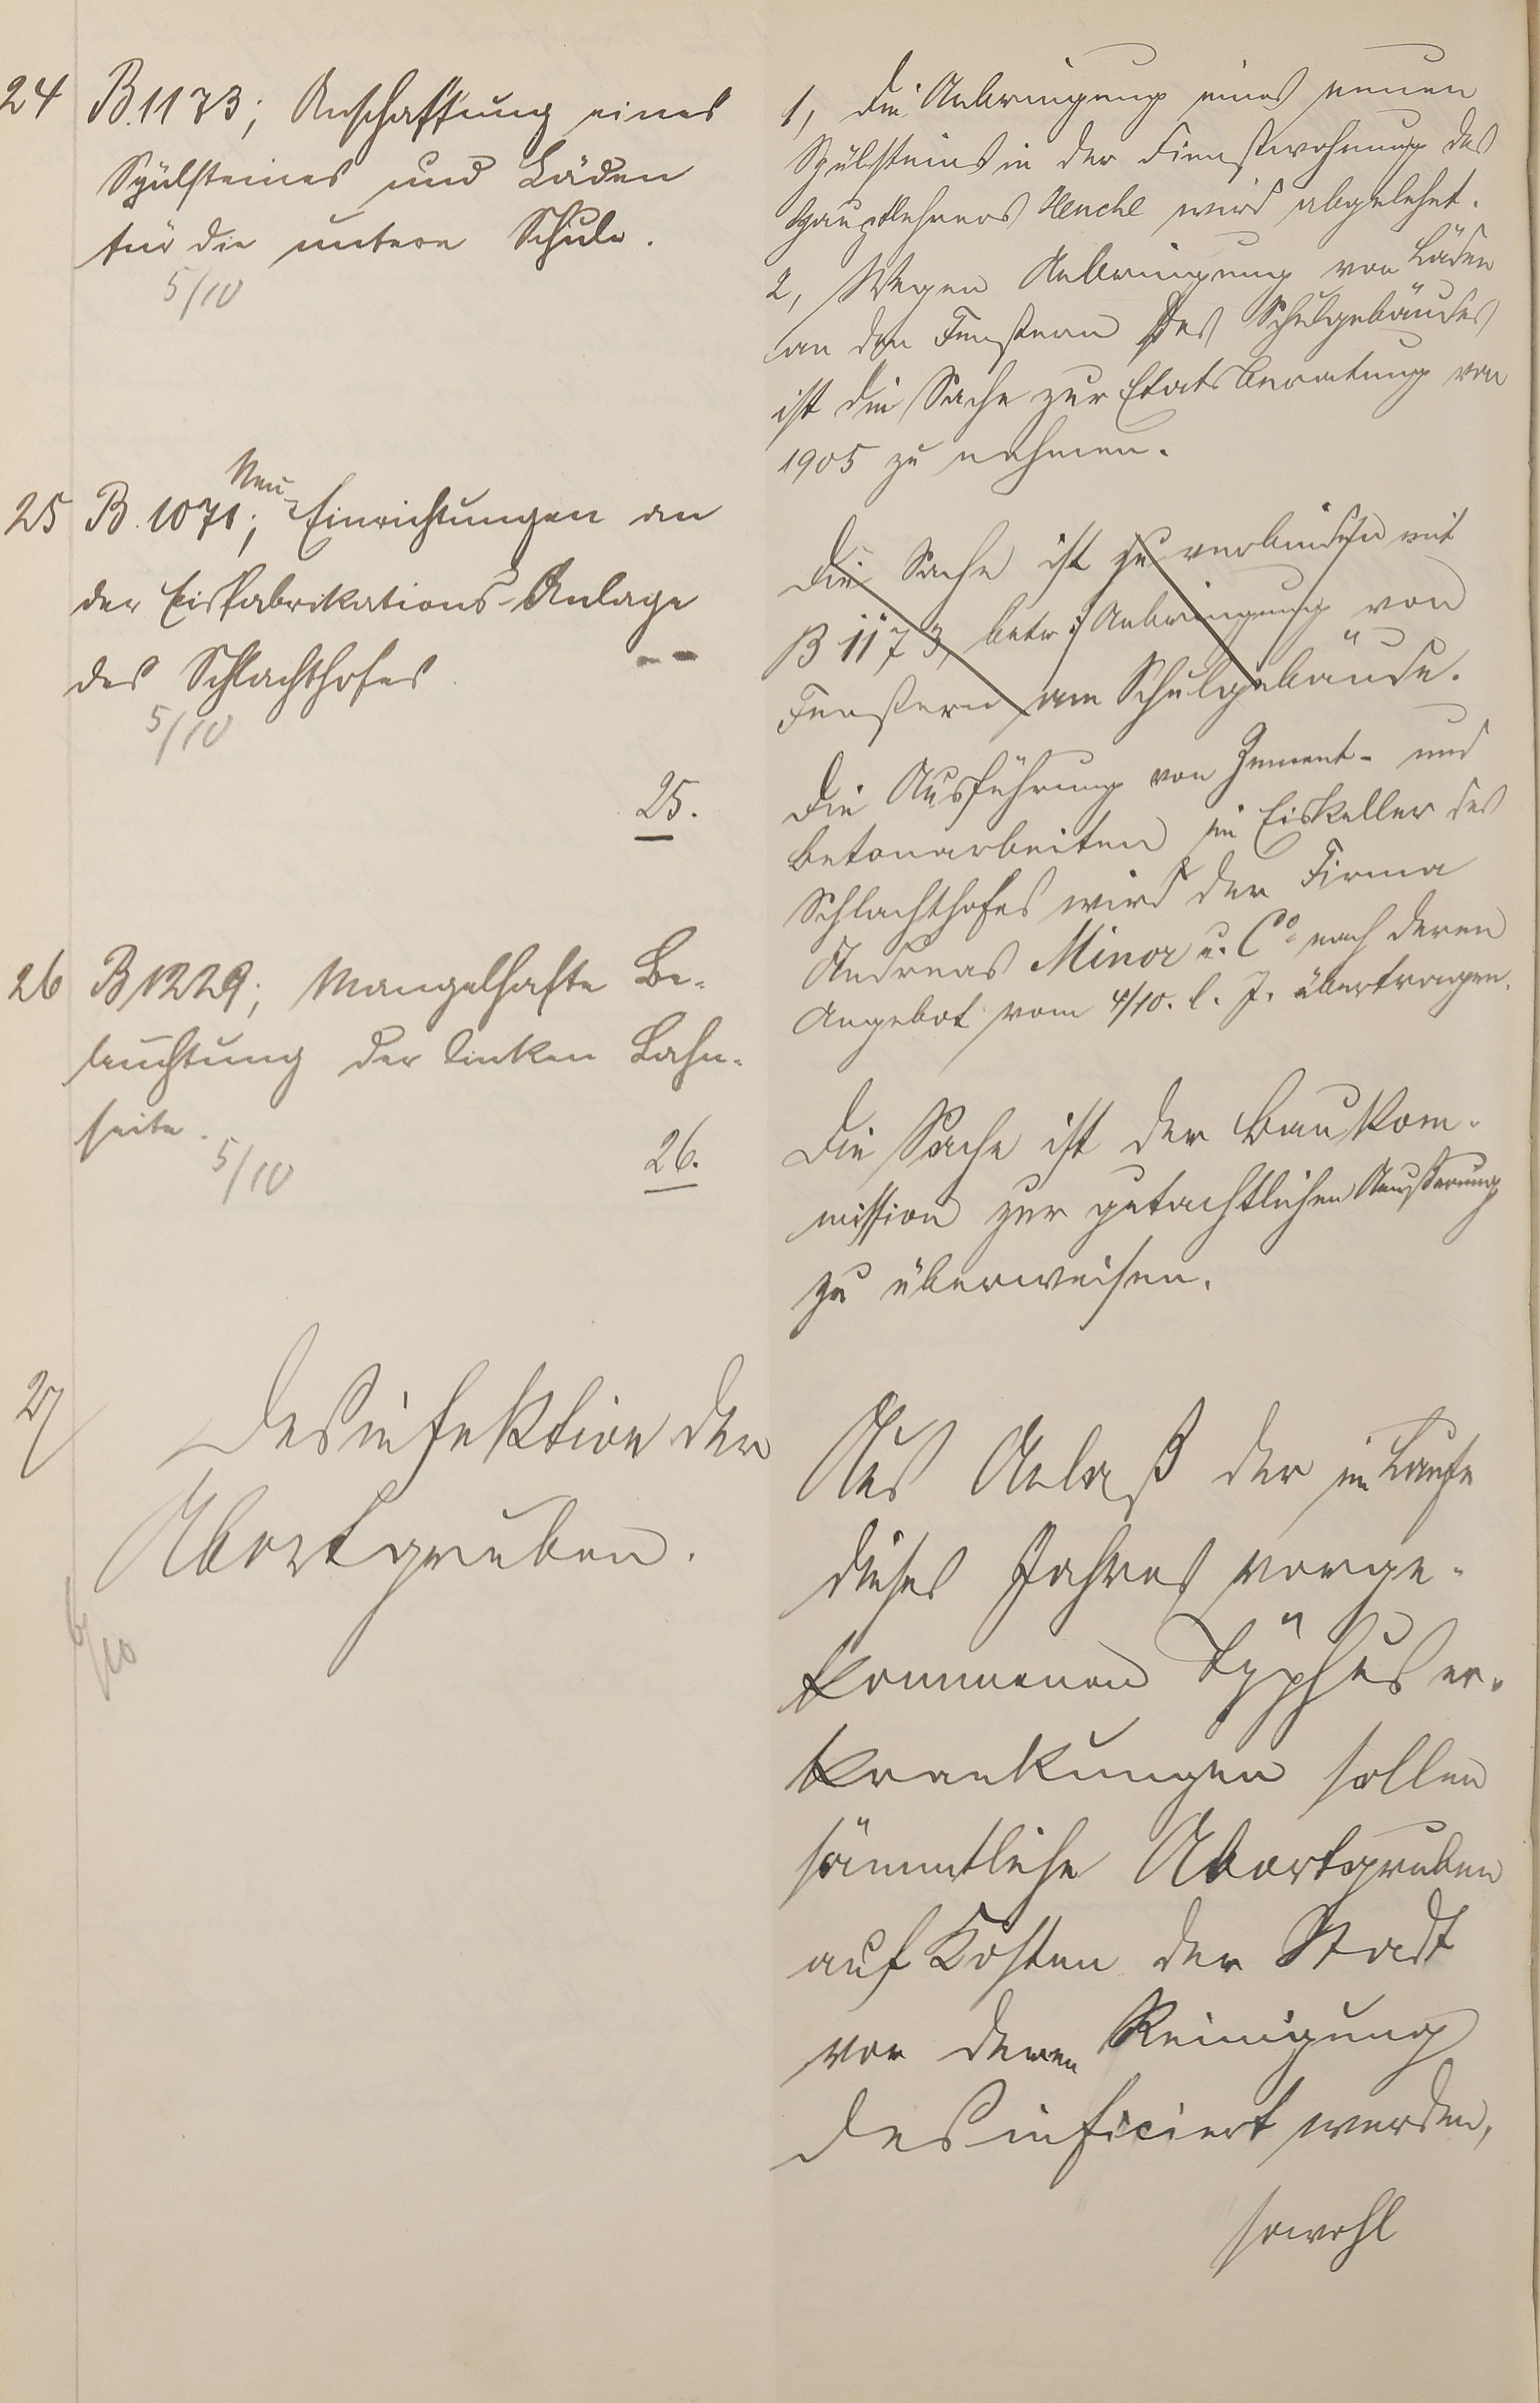 24 B. 1173; Anschaffung eines
Spülsteines und Läden
für die untere Schule.
5/10
1, die Anbringung eines neuen
Spülsteins in der Dienstwohnung des
Hauptlehrers Henche wird abgelehnt.
2, Wegen Anbringung von Läden
an den Fenstern des Schulgebäudes
ist die Sache zur Etatsberatung von
1905 zu nehmen.
25 B. 1071; Neu-Einrichtungen an
der Eisfabrikations-Anlage
des Schlachthofes
5/10
Die Sache ist zu verbinden mit
B 1173, betr: Anbringung von
Fenstern am Schulgebäude.
25.
Die Ausführung von Zement- und
Betonarbeiten im Eiskeller des
Schlachthofes wird der Firma
Andreas Minor u. Co. nach deren
Angebot vom 4/10. l. J. übertragen.
26 B 1229; Mangelhafte Be-
leuchtung der linken Lahn-
seite.
5/10
26.
Die Sache ist der Baukom-
mission zur gutachtlichen Aeußerung
zu überweisen.
27 Desinfektion der
Abortgruben.
6/10
Aus Anlaß der im Laufe
dieses Jahres vorge-
kommenen Typhuser-
krankungen sollen
sämmtliche Abortgruben
auf Kosten der Stadt
vor deren Reinigung
desinficiert werden,
sowohl